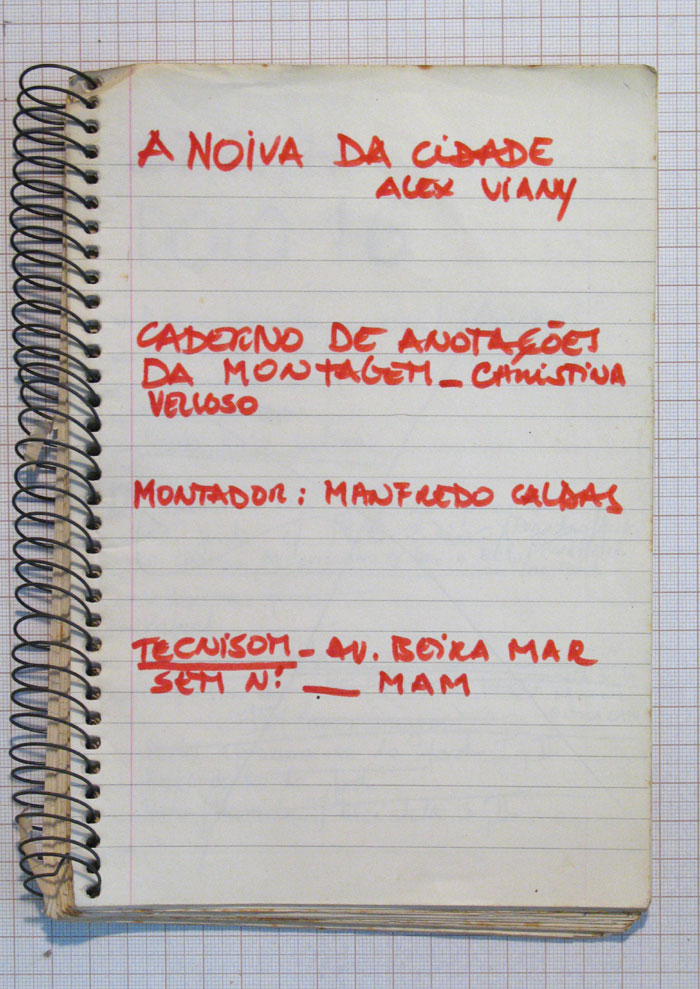 A NOIVA DA CIDADE
ALEX VIANY
CADERNO DE ANOTAÇÕES
DA MONTAGEM _ CHRISTINA
VELLOSO
MONTADOR: MANFREDO CALDAS
TECNISOM _ AV. BEIRA MAR
SEM Nº __ MAM